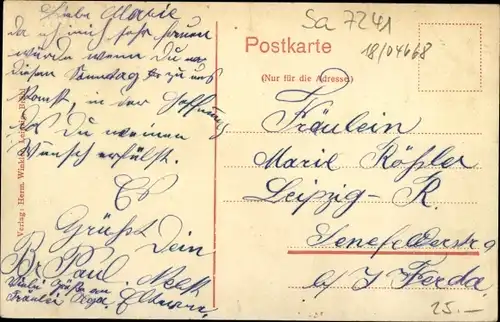 Liebe Marie
da ich mich sehr freuen
würde wenn Du na
diesen Sonntag zu uns
komst, in der Hoffnung
das Du meinen
Wunsch erfülst.
Es
Grüßt Dein
Br. Paul. Nebst
Viele Grüße an Eltern.
Fräulein Olga.
Verlag: Herm. Winkler, Leipzig
Sa 7241
18/04668
Postkarte
(Nur für die Adresse.)
Fräulein
Marie Rößler
Leipzig-R.
Senefelderstr 9
b/ J Kerda.
25.-